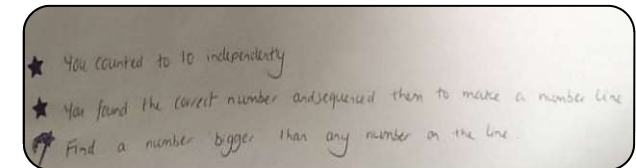 You counted to 10 independently
You found the correct number and sequenced them to make a number line
Find a number bigger than any number on the line.